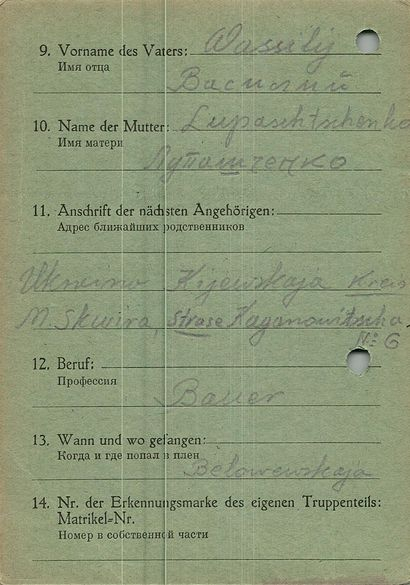 9. Vorname des Vaters: Wassilij
Имя отца
Василий
10. Name der Mutter: Lupaschtschenko
Имя матери
Лупащченко
11. Anschrift der nächsten Angehörigen:
Адрес ближайших родственников
Ukraino Kijewskaja Kreis
M. Skwira, Strase Kaganowitscha
№ 6
12. Beruf:
Профессия
Bauer
13. Wann und wo gefangen:
Когда и где попал в плен
Belowewskaja
14. Nr. der Erkennungsmarke des eigenen Truppenteils:
Matrikel=Nr.
Номер в собственной части